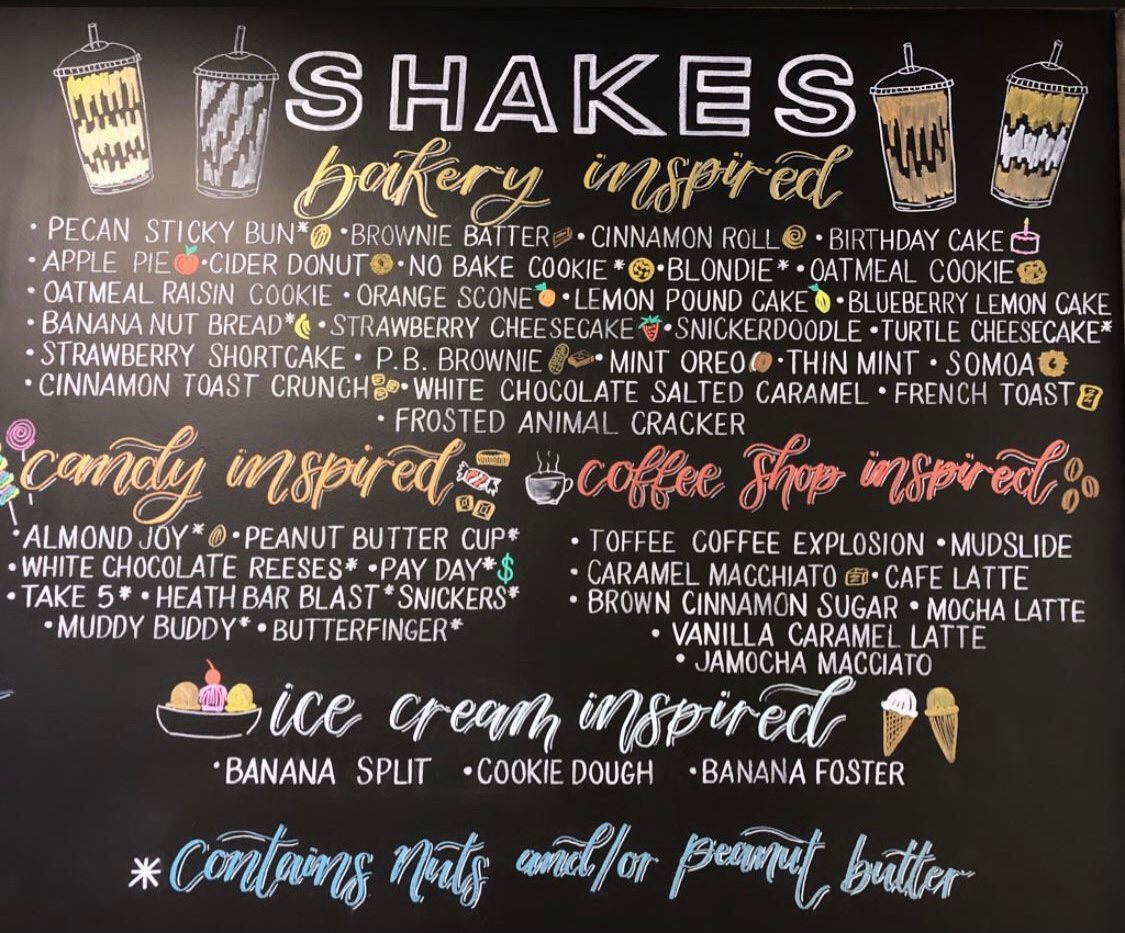 SHAKES
bakery inspired
• PECAN STICKY BUN* • BROWNIE BATTER • CINNAMON ROLL • BIRTHDAY CAKE
• APPLE PIE • CIDER DONUT • NO BAKE COOKIE * • BLONDIE* • OATMEAL COOKIE
• OATMEAL RAISIN COOKIE • ORANGE SCONE • LEMON POUND CAKE • BLUEBERRY LEMON CAKE
• BANANA NUT BREAD* • STRAWBERRY CHEESECAKE • SNICKERDOODLE • TURTLE CHEESECAKE*
• STRAWBERRY SHORTCAKE • P.B. BROWNIE • MINT OREO • THIN MINT • SOMOA
• CINNAMON TOAST CRUNCH • WHITE CHOCOLATE SALTED CARAMEL • FRENCH TOAST
• FROSTED ANIMAL CRACKER
candy inspired
• ALMOND JOY* • PEANUT BUTTER CUP*
• WHITE CHOCOLATE REESES* • PAY DAY* $
• TAKE 5* • HEATH BAR BLAST* SNICKERS*
• MUDDY BUDDY* • BUTTERFINGER*
coffee shop inspired
• TOFFEE COFFEE EXPLOSION • MUDSLIDE
• CARAMEL MACCHIATO • CAFE LATTE
• BROWN CINNAMON SUGAR • MOCHA LATTE
• VANILLA CARAMEL LATTE
• JAMOCHA MACCIATO
ice cream inspired
• BANANA SPLIT • COOKIE DOUGH • BANANA FOSTER
* Contains nuts and/or peanut butter